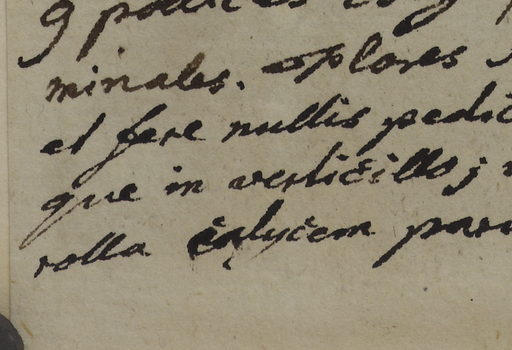 9 pollices
minales. Flores
et fere nullis pedic
que in verticillo;
rolla calycem par